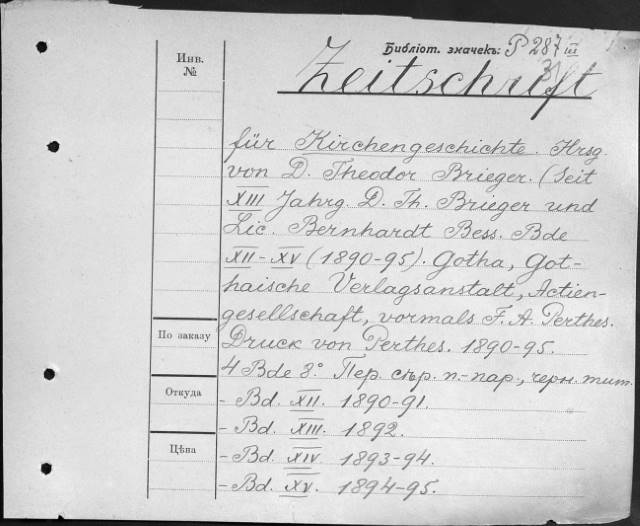 Библіот. значекъ: P 287 III
31
Инв.
№
Zeitschrift
für Kirchengeschichte. Hrsg.
von D. Theodor Brieger. (Seit
XIII Jahrg. D. Th. Brieger und
Lic. Bernhardt Bess. Bde
XII-XV (1890-95). Gotha, Got-
haische Verlagsanstalt, Actien-
gesellschaft, vormals F. A. Perthes.
По заказу
Druck von Perthes. 1890-95.
4 Bde 8°. Пер. сѣр. п.-пар., черн. тит.
Откуда
- Bd. XII. 1890-91.
- Bd. XIII. 1892.
Цѣна
- Bd. XIV. 1893-94.
- Bd. XV. 1894-95.